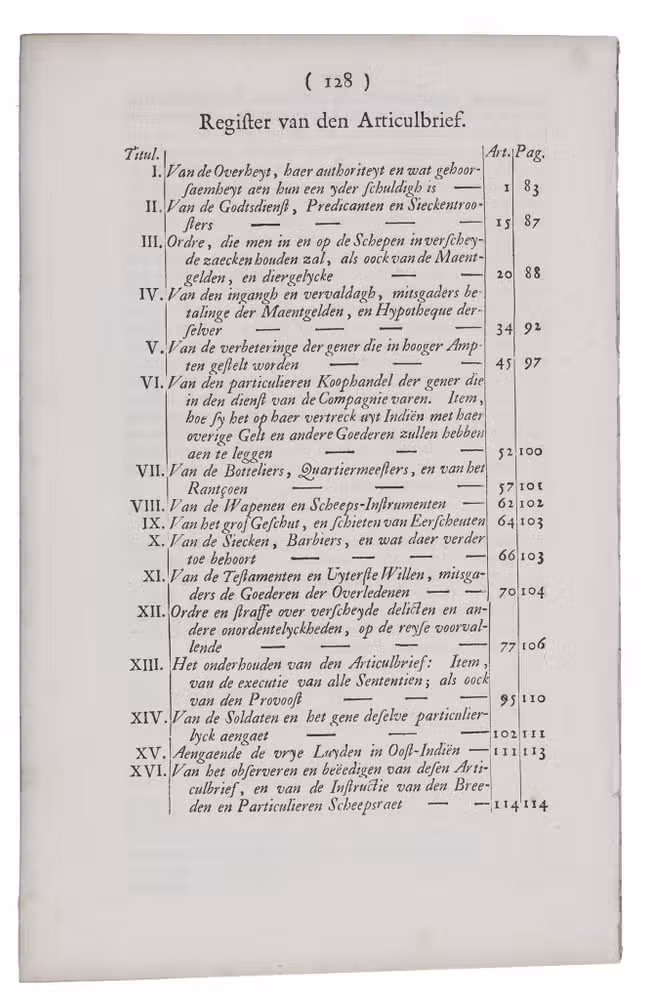 ( 128 )
Regiſter van den Articulbrief.
Titul. Art. Pag.
I. Van de Overheyt, haer authoriteyt en wat gehoor-
ſaemheyt aen hun een yder ſchuldigh is — 1 83
II. Van de Godtsdienſt, Predicanten en Sieckentroo-
ſters — — — — 15 87
III. Ordre, die men in en op de Schepen in verſchey-
de zaecken houden zal, als oock van de Maent-
gelden, en diergelycke — — 20 88
IV. Van den ingangh en vervaldagh, mitsgaders be-
talinge der Maentgelden, en Hypotheque der-
ſelver — — — — 34 92
V. Van de verbeteringe der gener die in hooger Amp-
ten geſtelt worden — — — 45 97
VI. Van den particulieren Koophandel der gener die
in den dienſt van de Compagnie varen. Item,
hoe ſy het op haer vertreck uyt Indiën met haer
overige Gelt en andere Goederen zullen hebben
aen te leggen — — — 52 100
VII. Van de Botteliers, Quartiermeeſters, en van het
Rantçoen — — — 57 101
VIII. Van de Wapenen en Scheeps-Inſtrumenten — 62 102
IX. Van het grof Geſchut, en ſchieten van Eerſcheuten 64 103
X. Van de Siecken, Barbiers, en wat daer verder
toe behoort — — — — 66 103
XI. Van de Teſtamenten en Uyterſte Willen, mitsga-
ders de Goederen der Overledenen — — 70 104
XII. Ordre en ſtraffe over verſcheyde delicten en an-
dere onordentelyckheden, op de reyſe voorval-
lende — — — — 77 106
XIII. Het onderhouden van den Articulbrief: Item,
van de executie van alle Sententien; als oock
van den Provooſt — — — 95 110
XIV. Van de Soldaten en het gene deſelve particulier-
lyck aengaet — — — 102 111
XV. Aengaende de vrye Luyden in Ooſt-Indiën — 111 113
XVI. Van het obſerveren en beëedigen van deſen Arti-
culbrief, en van de Inſtructie van den Bree-
den en Particulieren Scheepsraet — — 114 114